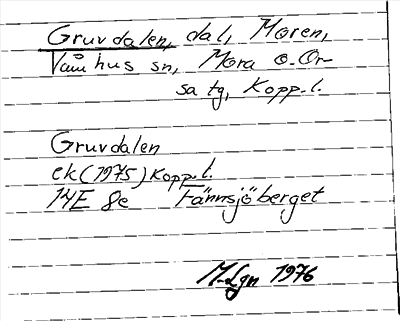 Gruvdalen, dal, Moren,
Våmhus sn, Mora o. Or-
sa tg, Kopp. l.
Gruvdalen
ek (1975) Kopp. l.
14E 8e Fännsjöberget
M-Lgn 1976